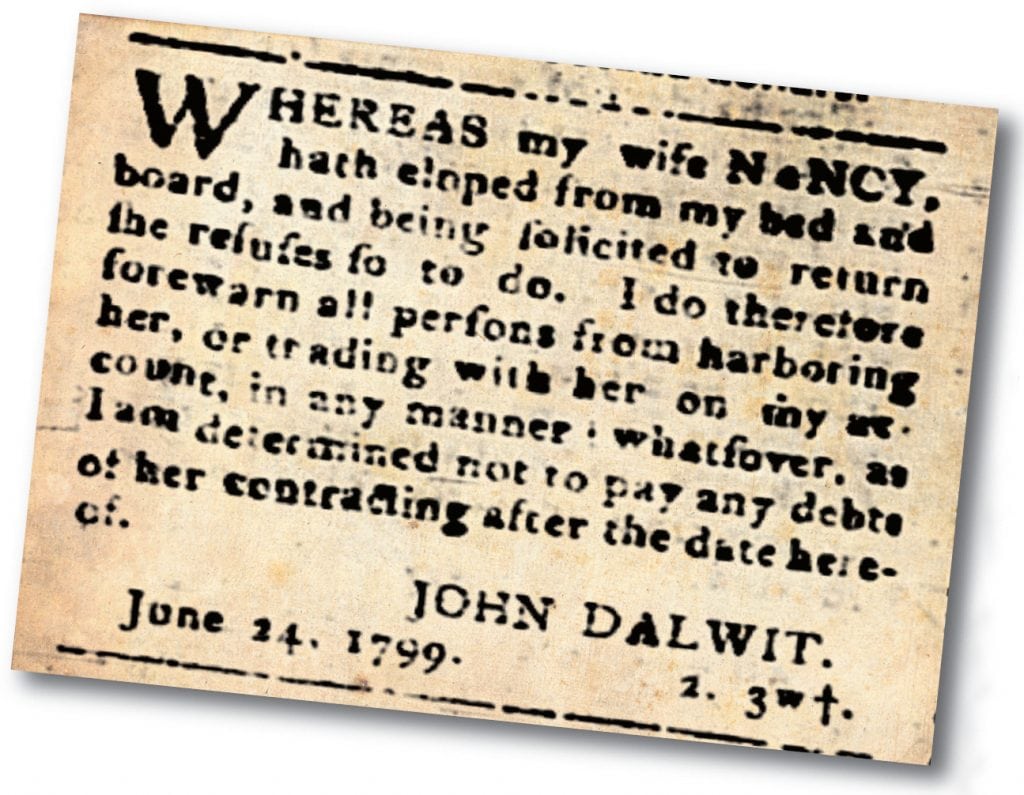 WHEREAS my wife NaNCY,
hath eloped from my bed and
board, and being ſolicited to return
ſhe refuſes ſo to do. I do therefore
forewarn all perſons from harboring
her, or trading with her on my ac-
count, in any manner whatſover, as
I am determined not to pay any debts
of her contracting after the date here-
of.
JOHN DALWIT.
June 24, 1799.
2. 3w†.